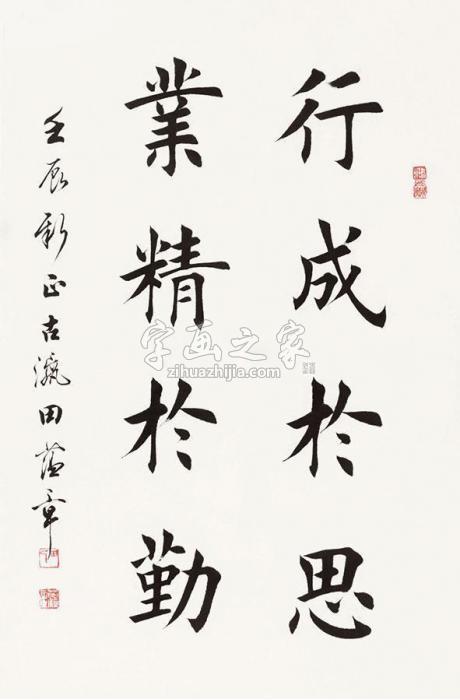 行成於思
業精於勤
壬辰新正古瀛田蘊章
字画之家
zihuazhijia.com